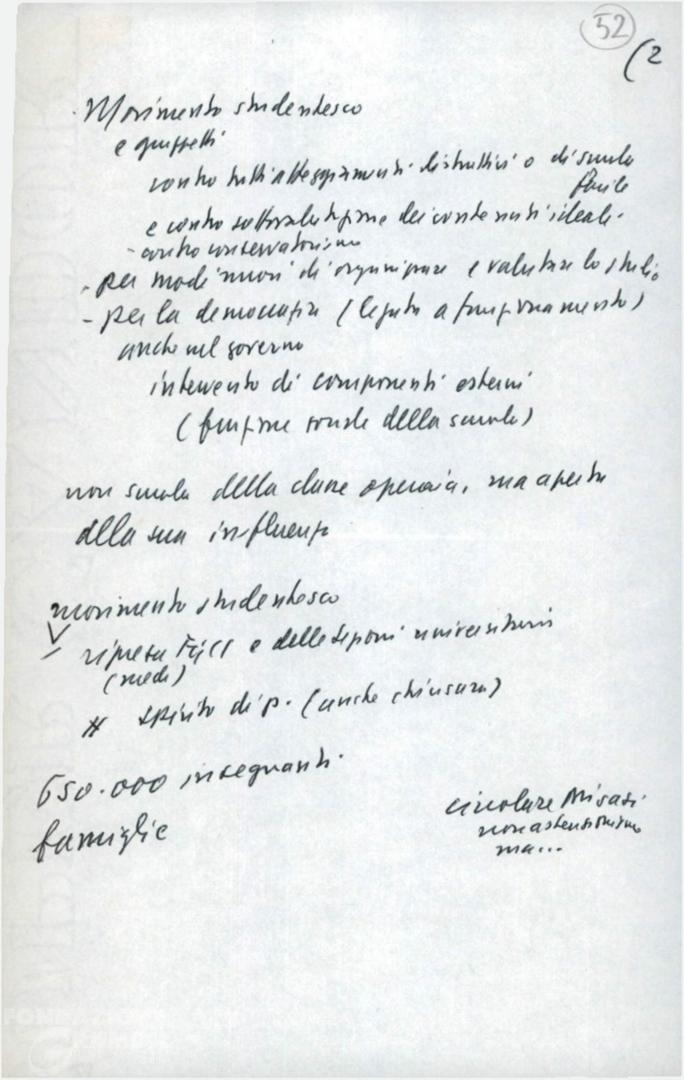 52
(2
Movimento studentesco
e gruppetti
contro tutti atteggiamenti distruttivi o di scuola
facile
e contro sottovalutazione dei contenuti ideali.
- contro conservatorismo
- per modi nuovi di organizzare e valutare lo studio
- per la democrazia (legata a funzionamento)
anche nel governo
intervento di componenti esterni
(funzione sociale della scuola)
non scuola della classe operaia, ma aperta
alla sua influenza
movimento studentesco
- ripresa FGCI e delle sezioni universitarie
(medi)
# spirito di p. (anche chiusura)
650.000 insegnanti.
famiglie
circolare Misasi
non astensionismo
ma...
FONDAZIONE